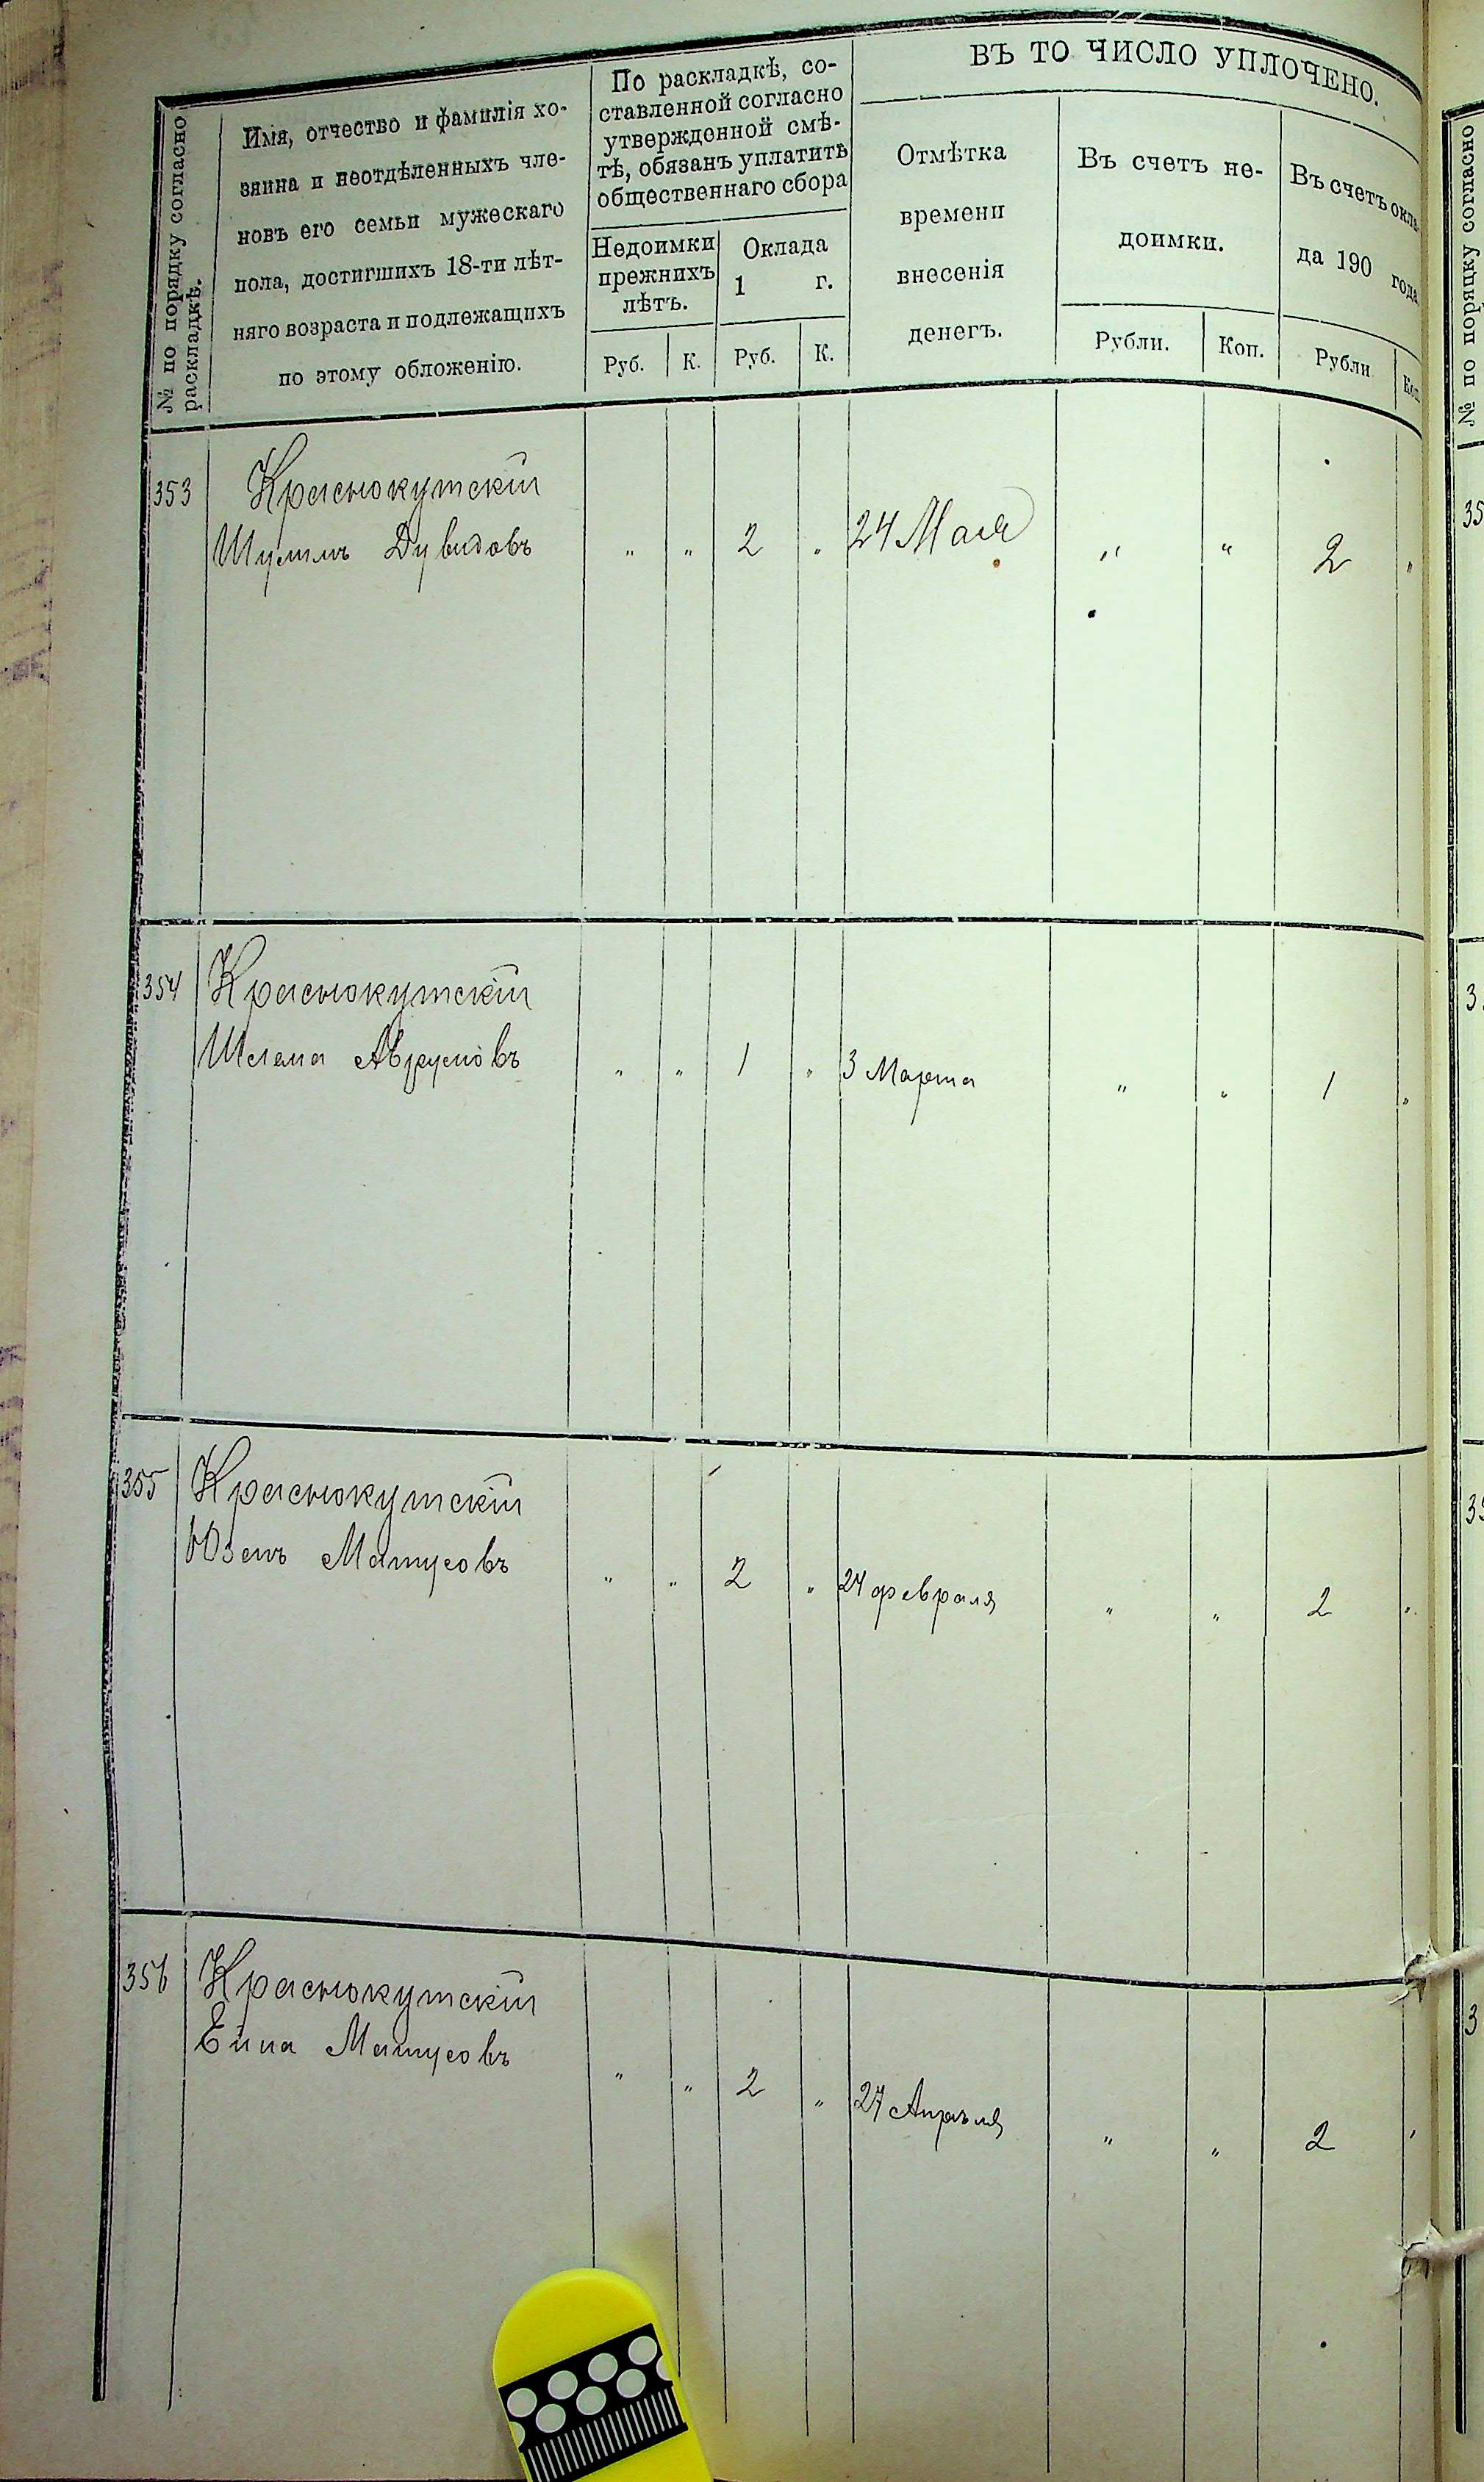 № по порядку согласно
раскладкѣ.
Имя, отчество и фамилія хо-
зяина и неотдѣленныхъ чле-
новъ его семьи мужескаго
пола, достигшихъ 18-ти лѣт-
няго возраста и подлежащихъ
по этому обложенію.
По раскладкѣ, со-
ставленной согласно
утвержденной смѣ-
тѣ, обязанъ уплатить
общественнаго сбора
Недоимки
прежнихъ
лѣтъ.
Оклада
1 г.
Руб. К. Руб. К.
ВЪ ТО ЧИСЛО УПЛОЧЕНО.
Отмѣтка
времени
внесенія
денегъ.
Въ счетъ не-
доимки.
Рубли. Коп.
Въ счетъ окла-
да 190 года
Рубли Коп.
353 Краснокутскій
Дувидовъ „ „ 2 „ 24 Мая „ „ 2 „
354 Краснокутскій
„ „ 1 „ 3 Марта „ „ 1 „
355 Краснокутскій
Матусовъ „ „ 2 „ 24 февраля „ „ 2 „
356 Краснокутскій
Матусовъ „ „ 2 „ 27 Апрѣля „ „ 2 „
№ по порядку согласно